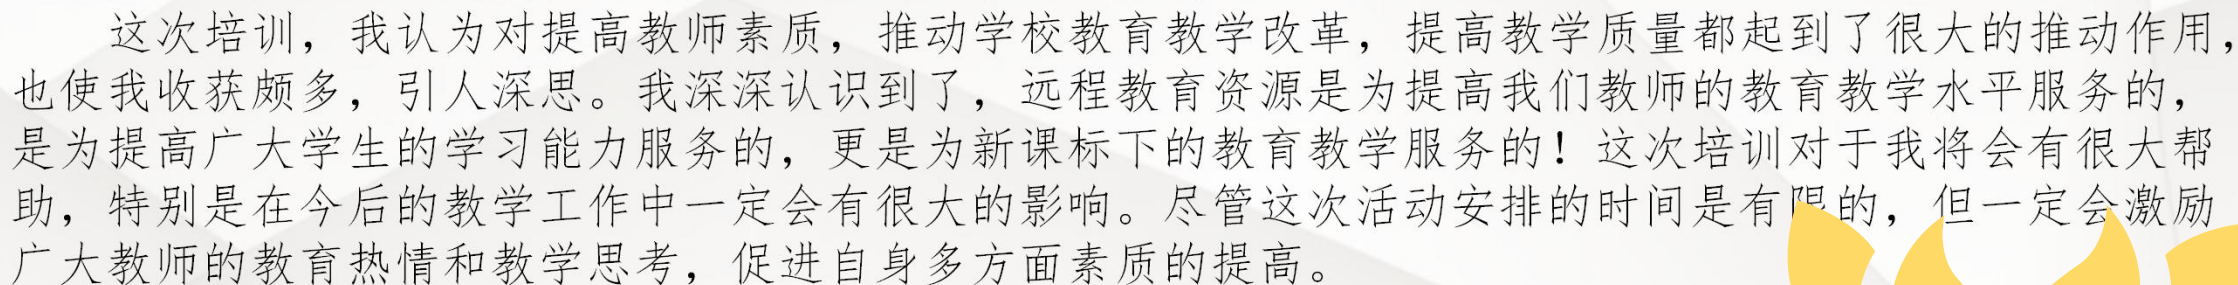 这次培训，我认为对提高教师素质，推动学校教育教学改革，提高教学质量都起到了很大的推动作用，
也使我收获颇多，引人深思。我深深认识到了，远程教育资源是为提高我们教师的教育教学水平服务的，
是为提高广大学生的学习能力服务的，更是为新课标下的教育教学服务的！这次培训对于我将会有很大帮
助，特别是在今后的教学工作中一定会有很大的影响。尽管这次活动安排的时间是有限的，但一定会激励
广大教师的教育热情和教学思考，促进自身多方面素质的提高。